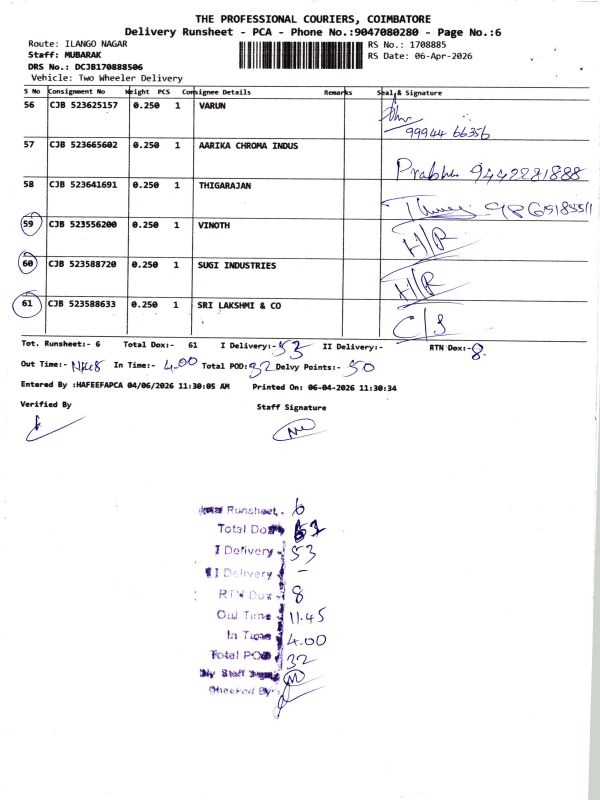 THE PROFESSIONAL COURIERS, COIMBATORE
Delivery Runsheet - PCA - Phone No.:9047080280 - Page No.:6
Route: ILANGO NAGAR RS No.: 1708885
Staff: MUBARAK RS Date: 06-Apr-2026
DRS No.: DCJB170888506
Vehicle: Two Wheeler Delivery
S No Consignment No Weight PCS Consignee Details Remarks Seal & Signature
56 CJB 523625157 0.250 1 VARUN
99944 66356
57 CJB 523665602 0.250 1 AARIKA CHROMA INDUS
Prabhu 9442281888
58 CJB 523641691 0.250 1 THIGARAJAN
59 CJB 523556200 0.250 1 VINOTH H/R
60 CJB 523588720 0.250 1 SUGI INDUSTRIES H/R
61 CJB 523588633 0.250 1 SRI LAKSHMI & CO C/S
Tot. Runsheet:- 6 Total Dox:- 61 I Delivery:- 53 II Delivery:- RTN Dox:- 8
Out Time:- In Time:- 4.00 Total POD: 32 Delvy Points:- 50
Entered By :HAFEEFAPCA 04/06/2026 11:30:05 AM Printed On: 06-04-2026 11:30:34
Verified By Staff Signature
Total Runsheet. 6
Total Dox 61
I Delivery 53
II Delivery -
RTN Dox 8
Out Time 11.45
In Time 4.00
Total POD 32
Dly Staff
Checked By